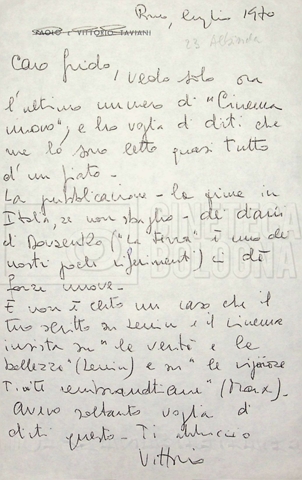 Roma, luglio 1970
PAOLO e VITTORIO TAVIANI
Caro Guido, vedo solo ora
l'ultimo numero di "Cinema
nuovo", e ho voglia di dirti che
me lo sono letto quasi tutto
d'un fiato.
La pubblicazione - la prima in
Italia, se non sbaglio - dei diari
di Dovzenko ("La terra" è uno dei
nostri pochi riferimenti) ci dà
forze nuove.
E non è certo un caso che il
tuo scritto su Lenin e il cinema
insista su "la verità e la
bellezza" (Lenin) e su "la vigorosa
rembrandtiane" (Marx).
Avevo soltanto voglia di
dirti questo. Ti abbraccio
Vittorio
CINETECA
BOLOGNA